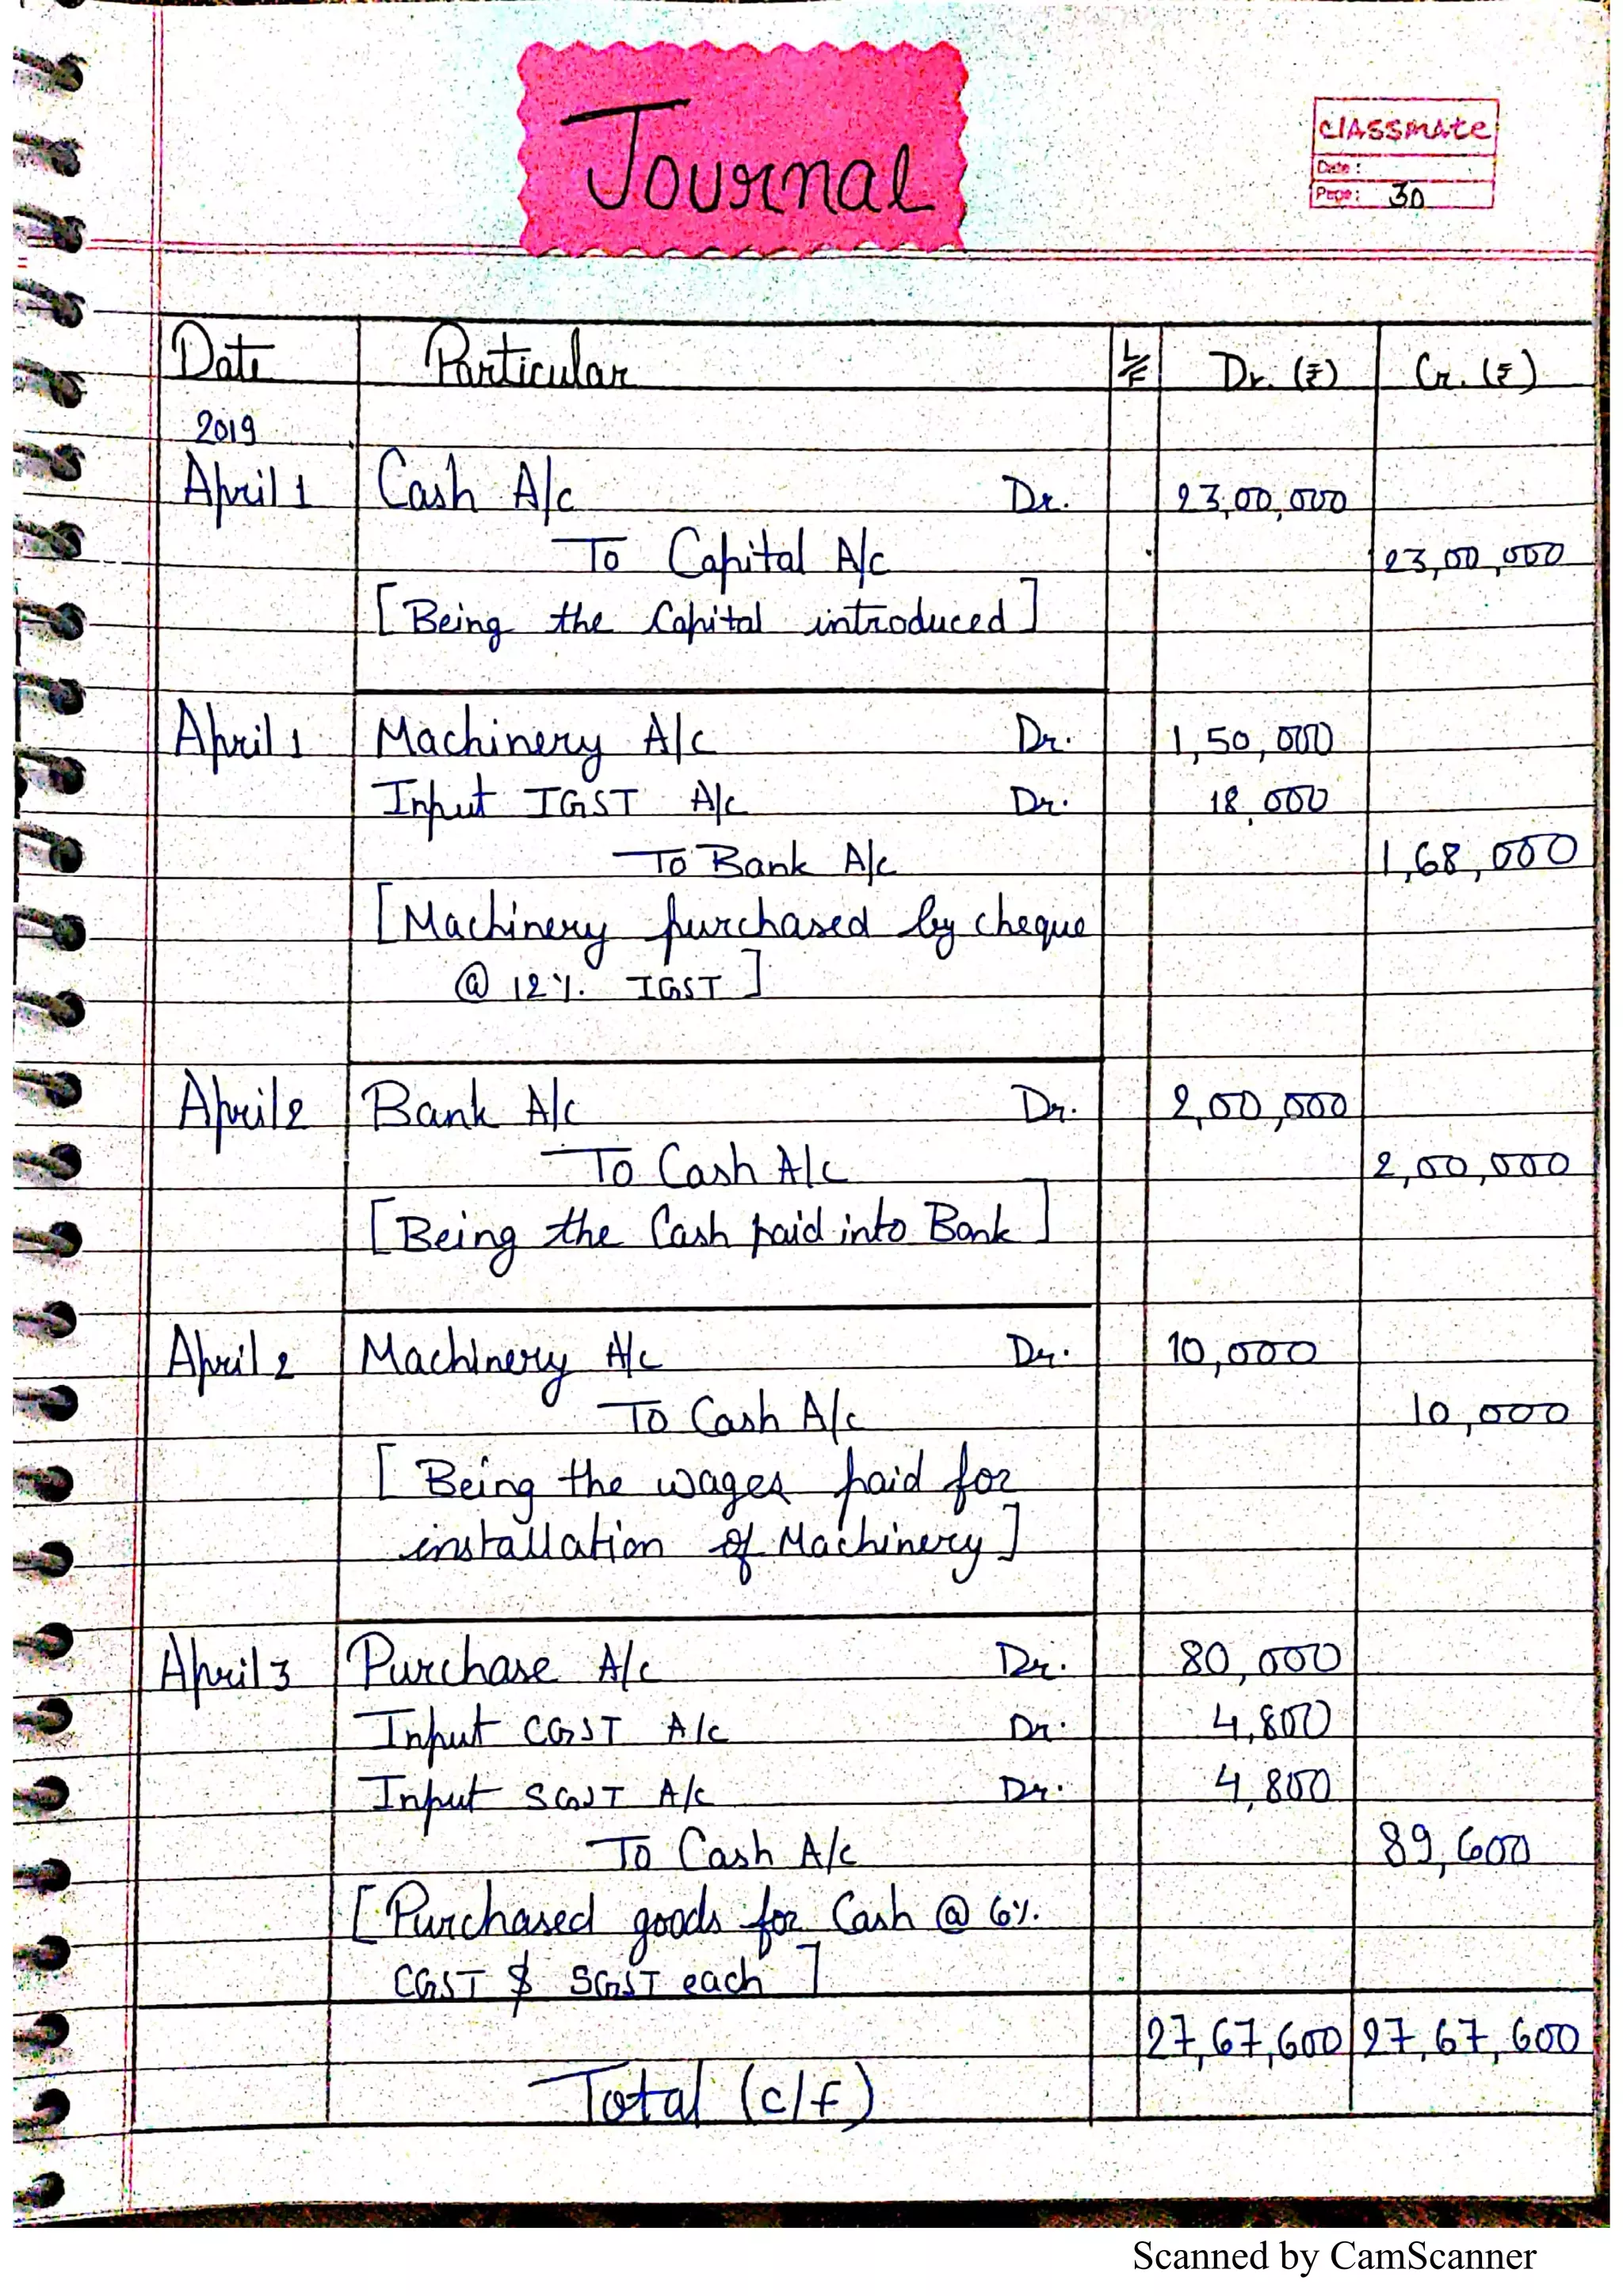 Journal
classmate
Date :
Page: 30
Date Particular L/F Dr. (₹) Cr. (₹)
2019
April 1 Cash A/c Dr. 23,00,000
To Capital A/c 23,00,000
[Being the Capital introduced]
April 1 Machinery A/c Dr. 1,50,000
Input IGST A/c Dr. 18,000
To Bank A/c 1,68,000
[Machinery purchased by cheque
@ 12%. IGST]
April 2 Bank A/c Dr. 2,00,000
To Cash A/c 2,00,000
[Being the Cash paid into Bank]
April 2 Machinery A/c Dr. 10,000
To Cash A/c 10,000
[Being the wages paid for
installation of Machinery]
April 3 Purchase A/c Dr. 80,000
Input CGST A/c Dr. 4,800
Input SGST A/c Dr. 4,800
To Cash A/c 89,600
[Purchased goods for Cash @ 6%.
CGST & SGST each]
27,67,600 27,67,600
Total (c/f)
Scanned by CamScanner